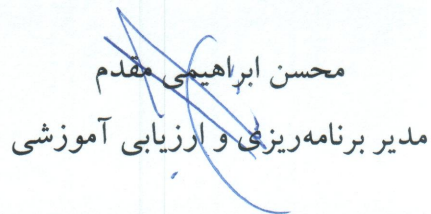 محسن ابراهیمی مقدم
مدیر برنامه‌ریزی و ارزیابی آموزشی